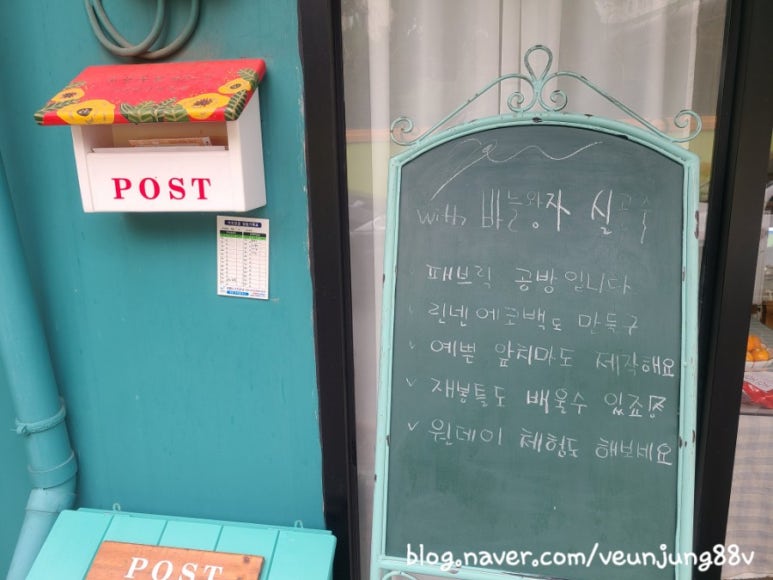 POST
with 바늘와자 실공수
패브릭 공방입니다
린넨에코백도 만들구
v 예쁜 앞치마도 제작해요
v 재봉틀도 배울수 있죠
v 원데이 체험도 해보세요
POST
blog.naver.com/veunjung88v